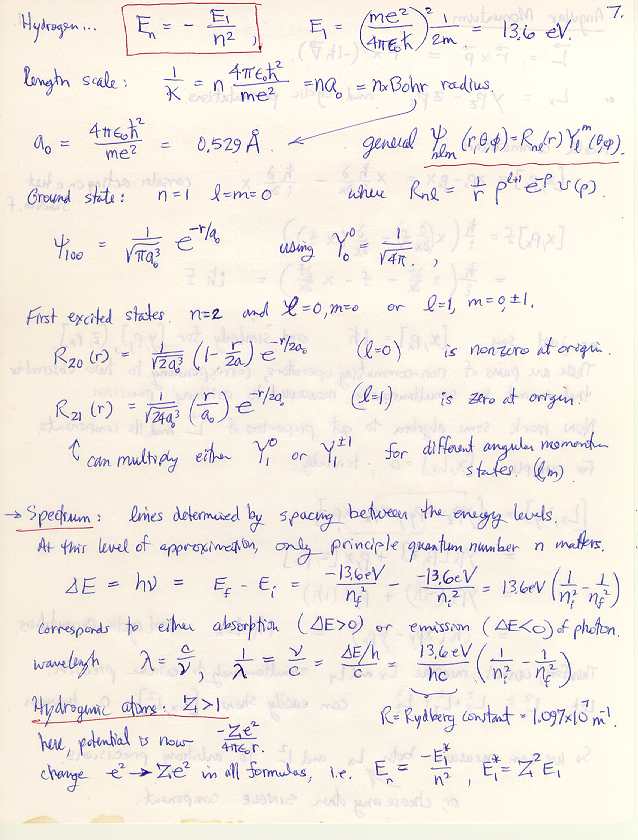 7.
Hydrogen... E_n = - E_1/n², E_1 = (me²/4πε₀ħ)² 1/2m = 13.6 eV.
length scale: 1/K = n 4πε₀ħ²/me² = na₀ = n×Bohr radius.
a₀ = 4πε₀ħ²/me² = 0.529 Å. general ψ_nlm (r,θ,φ) = R_nl(r) Y_l^m (θ,φ).
Ground state: n=1 l=m=0 where R_nl = 1/r ρ^(l+1) e^(-ρ) v(ρ).
ψ_100 = 1/√(πa₀³) e^(-r/a₀) using Y_0^0 = 1/√4π.,
First excited states. n=2 and l=0, m=0 or l=1, m=0,±1.
R_20 (r) = 1/√(2a₀³) (1 - r/2a) e^(-r/2a₀) (l=0) is nonzero at origin.
R_21 (r) = 1/√(24a₀³) (r/a₀) e^(-r/2a₀) (l=1) is zero at origin.
↑ can multiply either Y_1^0 or Y_1^±1 for different angular momentum
states. (l,m)
→ Spectrum: lines determined by spacing between the energy levels.
At this level of approximation, only principle quantum number n matters.
ΔE = hν = E_f - E_i = -13.6eV/n_f² - -13.6eV/n_i² = 13.6eV (1/n_i² - 1/n_f²)
corresponds to either absorption (ΔE>0) or emission (ΔE<0) of photon.
wavelength λ = c/ν, 1/λ = ν/c = ΔE/h/c = 13.6eV/hc (1/n_i² - 1/n_f²)
Hydrogenic atoms. Z>1 R = Rydberg constant = 1.097×10⁷ m⁻¹
here, potential is now -Ze²/4πε₀r.
change -e² → Ze² in all formulas, i.e. E_n = -E_1*/n², E_1* = Z² E_1